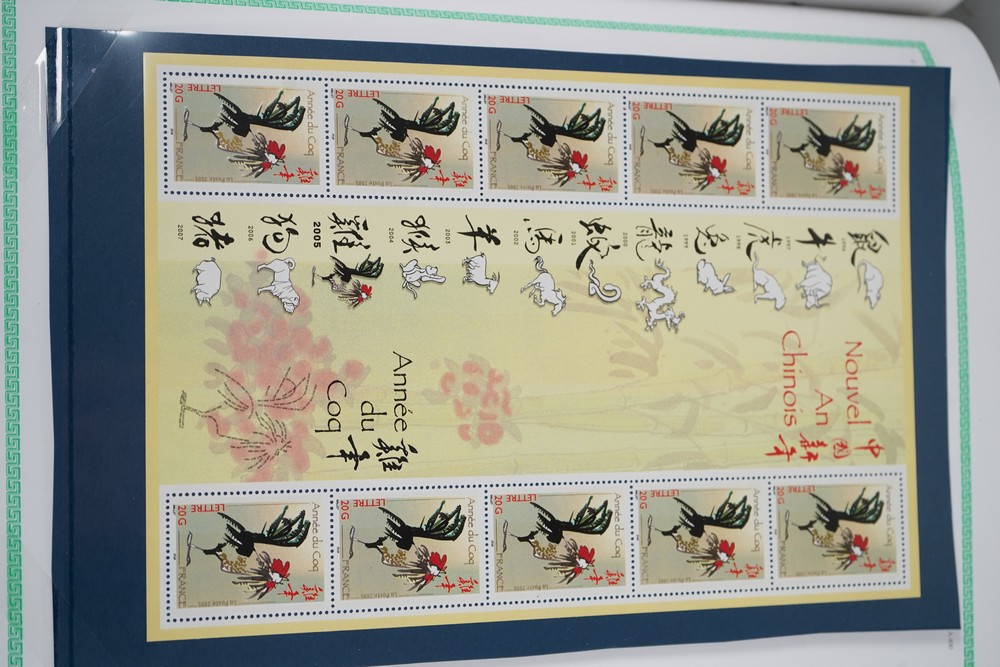 Nouvel
An
Chinois
中
國
新
年
鼠
1996
牛
1997
虎
1998
兔
1999
龍
2000
蛇
2001
馬
2002
羊
2003
猴
2004
雞
2005
狗
2006
猪
2007
Année
du
Coq
雞
年
Année du Coq
雞年
LETTRE
20 G
La Poste 2005
FRANCE
Année du Coq
雞年
LETTRE
20 G
La Poste 2005
FRANCE
Année du Coq
雞年
LETTRE
20 G
La Poste 2005
FRANCE
Année du Coq
雞年
LETTRE
20 G
La Poste 2005
FRANCE
Année du Coq
雞年
LETTRE
20 G
La Poste 2005
FRANCE
Année du Coq
雞年
LETTRE
20 G
La Poste 2005
FRANCE
Année du Coq
雞年
LETTRE
20 G
La Poste 2005
FRANCE
Année du Coq
雞年
LETTRE
20 G
La Poste 2005
FRANCE
Année du Coq
雞年
LETTRE
20 G
La Poste 2005
FRANCE
Année du Coq
雞年
LETTRE
20 G
La Poste 2005
FRANCE